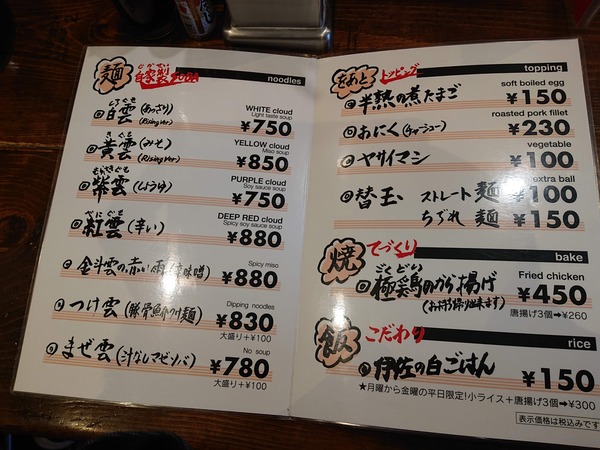 麺 自家製 noodles
しろくも
白雲 (あっさり)
(Rising ver)
WHITE cloud
Light taste soup
¥750
きぐも
黄雲 (みそ)
(Rising ver)
YELLOW cloud
Miso soup
¥850
むらさきぐも
紫雲 (しょうゆ)
PURPLE cloud
Soy sauce soup
¥750
べにぐも
紅雲 (辛い)
DEEP RED cloud
Spicy soy sauce soup
¥880
金斗雲の赤い雨 (辛味噌)
Spicy miso
¥880
つけ雲 (豚骨魚介つけ麺)
Dipping noodles
¥830
大盛り+¥100
まぜ雲 (汁なしマゼソバ)
No soup
¥780
大盛り+¥100
をあと トッピング topping
半熟の煮たまご
soft boiled egg
¥150
おにく (チャーシュー)
roasted pork fillet
¥230
ヤサイマシ
vegetable
¥100
替玉 ストレート麺
extra ball
¥100
ちぢれ麺 ¥150
焼 てづくり bake
ごくどり
極鶏のから揚げ
(お持ち帰り出来ます)
Fried chicken
¥450
唐揚げ3個➡¥260
飯 こだわり rice
伊佐の白ごはん ¥150
★月曜から金曜の平日限定!小ライス+唐揚げ3個➡¥300
表示価格は税込みです